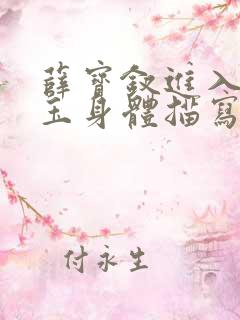 薛寶釵進入
玉身體描寫
付永生